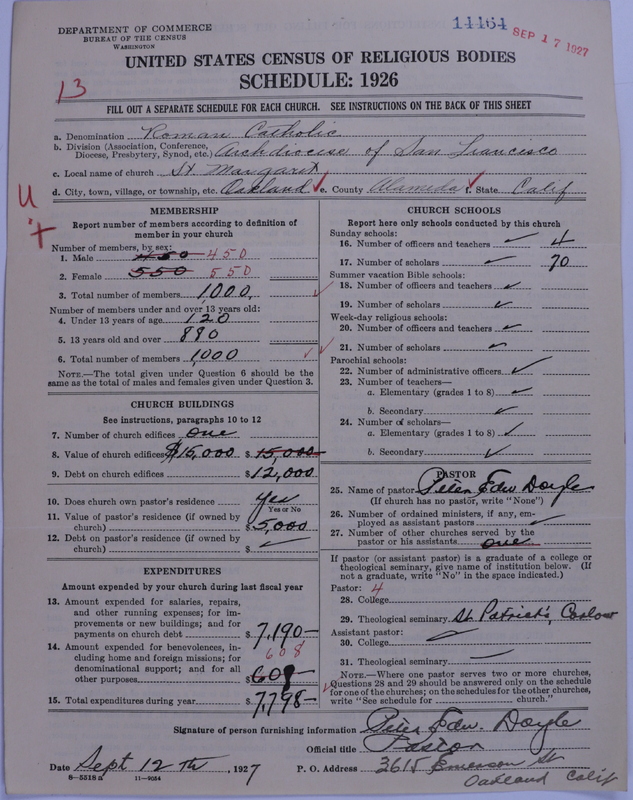 DEPARTMENT OF COMMERCE
BUREAU OF THE CENSUS
WASHINGTON
14464
SEP 17 1927
UNITED STATES CENSUS OF RELIGIOUS BODIES
SCHEDULE: 1926
13
FILL OUT A SEPARATE SCHEDULE FOR EACH CHURCH. SEE INSTRUCTIONS ON THE BACK OF THIS SHEET
a. Denomination Roman Catholic
b. Division (Association, Conference,
Diocese, Presbytery, Synod, etc.) Archdiocese of San Francisco
c. Local name of church St. Margaret
d. City, town, village, or township, etc. Oakland e. County Alameda f. State Calif
MEMBERSHIP
Report number of members according to definition of
member in your church
Number of members, by sex:
1. Male 450 450
2. Female 550 550
3. Total number of members 1,000.
Number of members under and over 13 years old:
4. Under 13 years of age 120
5. 13 years old and over 880
6. Total number of members 1000
NOTE.—The total given under Question 6 should be
same as the total of males and females given under Question 3.
CHURCH BUILDINGS
See instructions, paragraphs 10 to 12
7. Number of church edifices one
8. Value of church edifices $15,000 $ 15,000
9. Debt on church edifices $12,000
10. Does church own pastor's residence Yes
Yes or No
11. Value of pastor's residence (if owned by
church) $ 5,000
12. Debt on pastor's residence (if owned by
church) $ ✓
EXPENDITURES
Amount expended by your church during last fiscal year
13. Amount expended for salaries, repairs,
and other running expenses; for im-
provements or new buildings; and for
payments on church debt $ 7,190—
14. Amount expended for benevolences, in-
608
cluding home and foreign missions; for
denominational support; and for all
other purposes $ 608—
15. Total expenditures during year $ 7,798—
CHURCH SCHOOLS
Report here only schools conducted by this church
Sunday schools:
16. Number of officers and teachers ✓ 4
17. Number of scholars ✓ 70
Summer vacation Bible schools:
18. Number of officers and teachers ✓
19. Number of scholars ✓
Week-day religious schools:
20. Number of officers and teachers ✓
21. Number of scholars ✓
Parochial schools:
22. Number of administrative officers ✓
23. Number of teachers—
a. Elementary (grades 1 to 8) ✓
b. Secondary ✓
24. Number of scholars—
a. Elementary (grades 1 to 8) ✓
b. Secondary ✓
PASTOR
25. Name of pastor Peter Edw Doyle
(If church has no pastor, write "None")
26. Number of ordained ministers, if any, em-
ployed as assistant pastors ✓
27. Number of other churches served by the
pastor or his assistants one
If pastor (or assistant pastor) is a graduate of a college or
theological seminary, give name of institution below. (If
not a graduate, write "No" in the space indicated.)
Pastor: 4
28. College
29. Theological seminary St. Patrick's, Carlow
Assistant pastor:
30. College
31. Theological seminary
NOTE.—Where one pastor serves two or more churches,
Questions 28 and 29 should be answered only on the schedule
for one of the churches; on the schedules for the other churches,
write "See schedule for church."
Signature of person furnishing information Peter Edw. Doyle
Official title Pastor
Date Sept 12 TH, 1927 P. O. Address 3615 Emerson St
8-5518a 11-9054 Oakland Calif